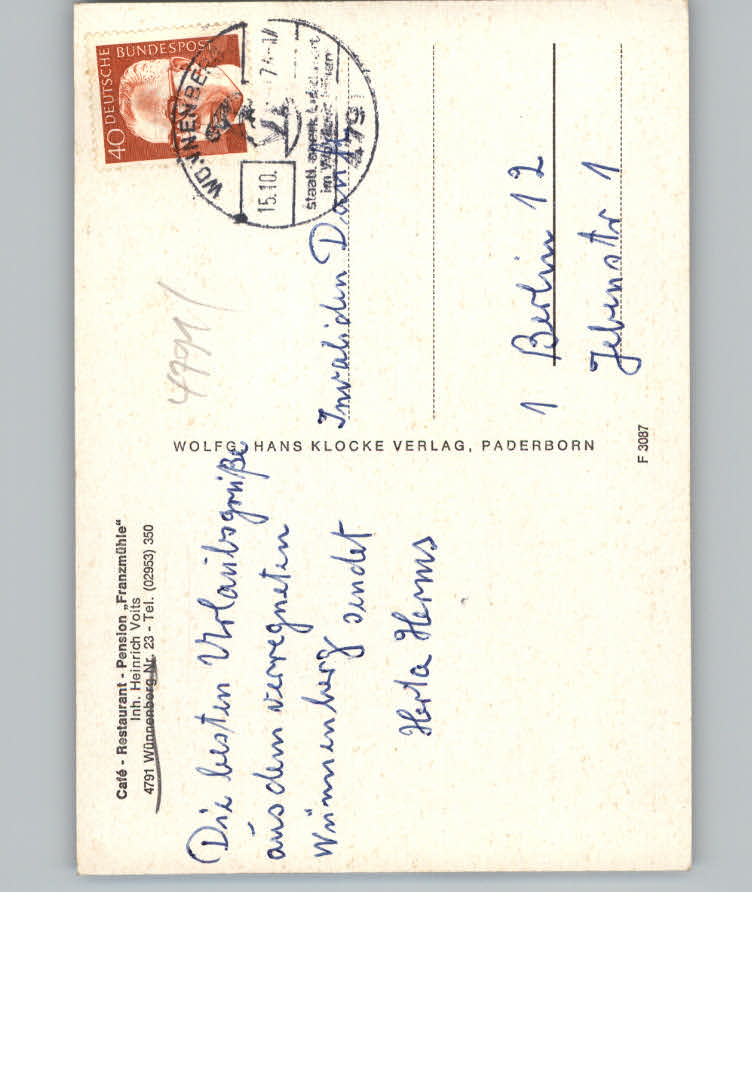 Café - Restaurant - Pension „Franzmühle“
Inh. Heinrich Voits
4791 Wünnenberg Nr. 23 - Tel. (02953) 350
Die besten Urlaubsgrüße
aus dem verregneten
Wünnenberg sendet
Herta Herms
WOLFG. HANS KLOCKE VERLAG, PADERBORN
F 3087
DEUTSCHE BUNDESPOST
40
15.10.
staatl. anerk.
im
4791
Invaliden Dank
1 Berlin 12
Jebenstr 1